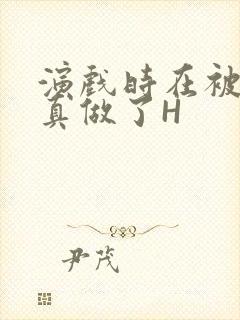 演戏时在被
真做了H
尹茂